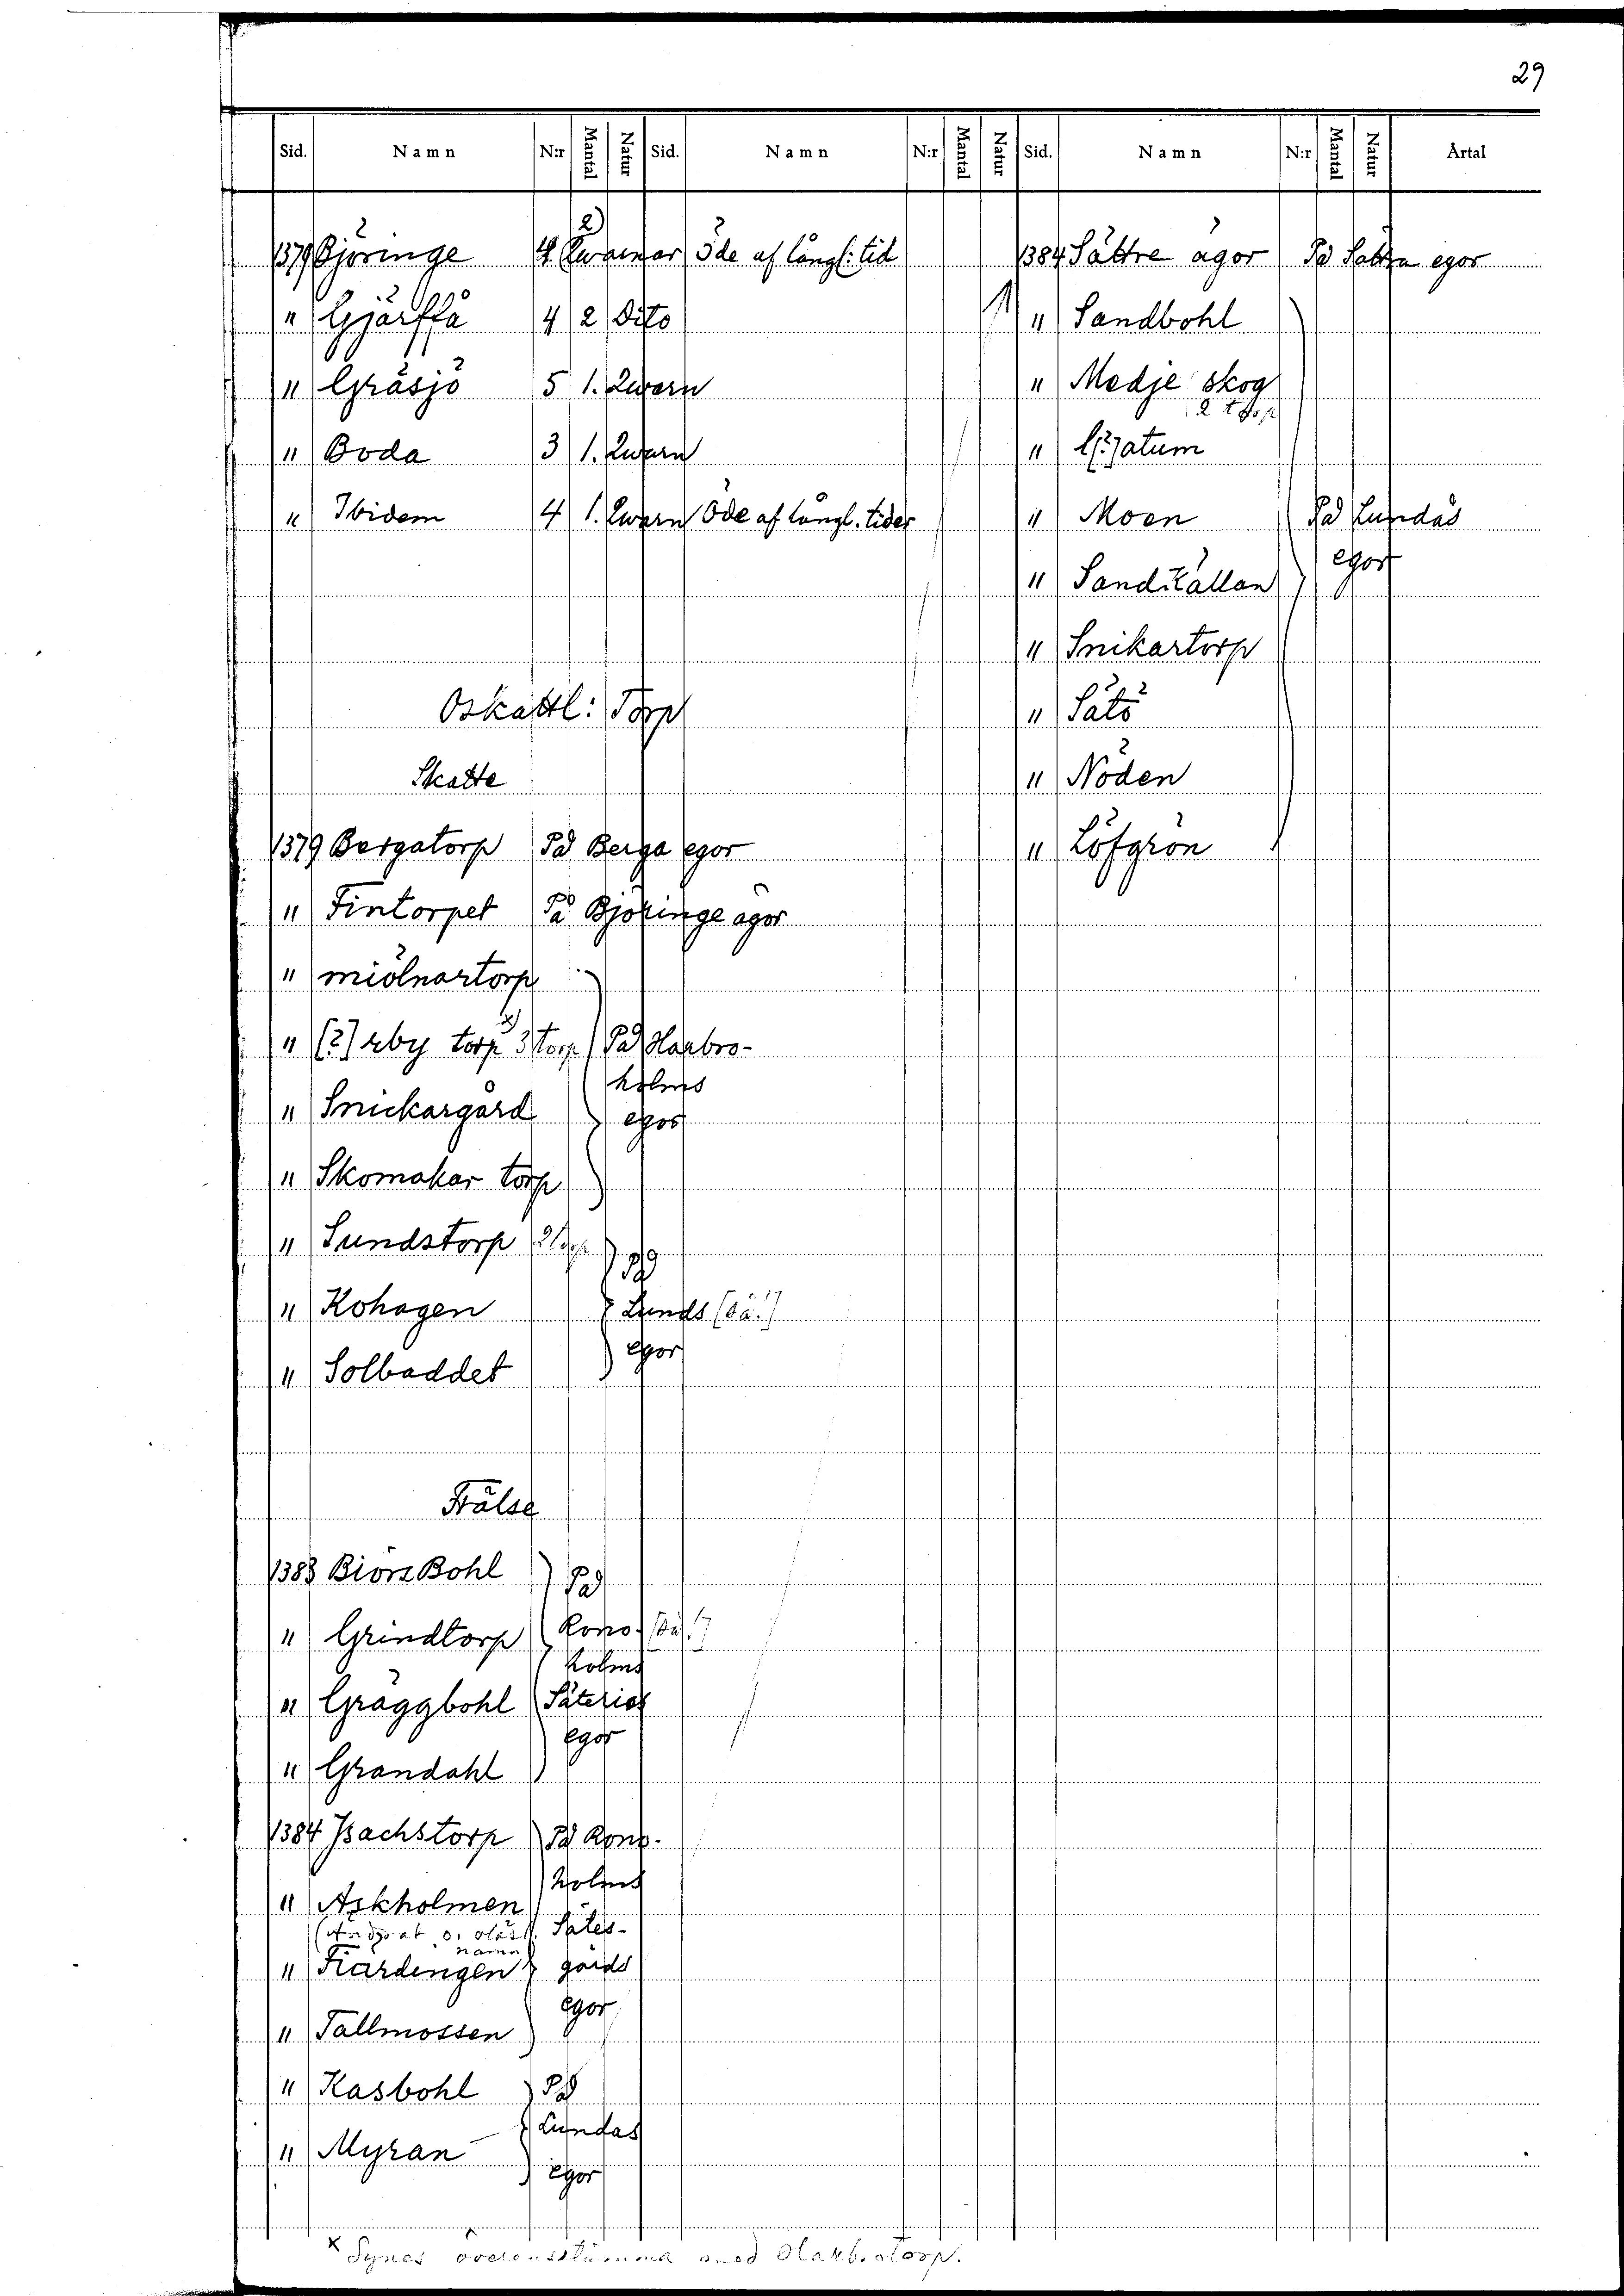 29
Sid. Namn N:r Mantal Natur Sid. Namn N:r Mantal Natur Sid. Namn N:r Mantal Natur Årtal
1379 Björinge 4 2) Qwarnar öde af långl: tid
" Gjärffå 4 2 Dito
" Gräsjö 5 1. Qwarn
" Boda 3 1. Qwarn
" Ibidem 4 1. Qwarn Öde af långl. tider
Oskattl: Torp
Skatte
1379 Bergatorp På Berga egor
" Fintorpet På Björinge ägor
" miölnartorp
" [?] rby torp x) 3 torp På Harbro-
holms
" Snickargård egor
" Skomakar torp
" Sundstorp 2 torp
På
" Kohagen Lunds [så!]
egor
" Solbaddet
Frälse
1383 Biörs Bohl På
" Grindtorp Rono- [så!]
holms
" Gräggbohl Säteries
egor
" Grandahl
1384 Isachstorp På Rono-
holms
" Askholmen
(Ändrat o. oläsl. Sätes-
namn
" Fiärdingen gårds
egor
" Tallmossen
" Kasbohl På
Lundas
" Myran
egor
1384 Sättre ägor På Sättra egor
" Sandbohl
" Medje skog
2 torp
" l[?]atum
" Moen På Lundås
egor
" Sandkällan
" Snikartorp
" Sätö
" Nöden
" Löfgrön
x Synes överensstämma med Harbrotorp.